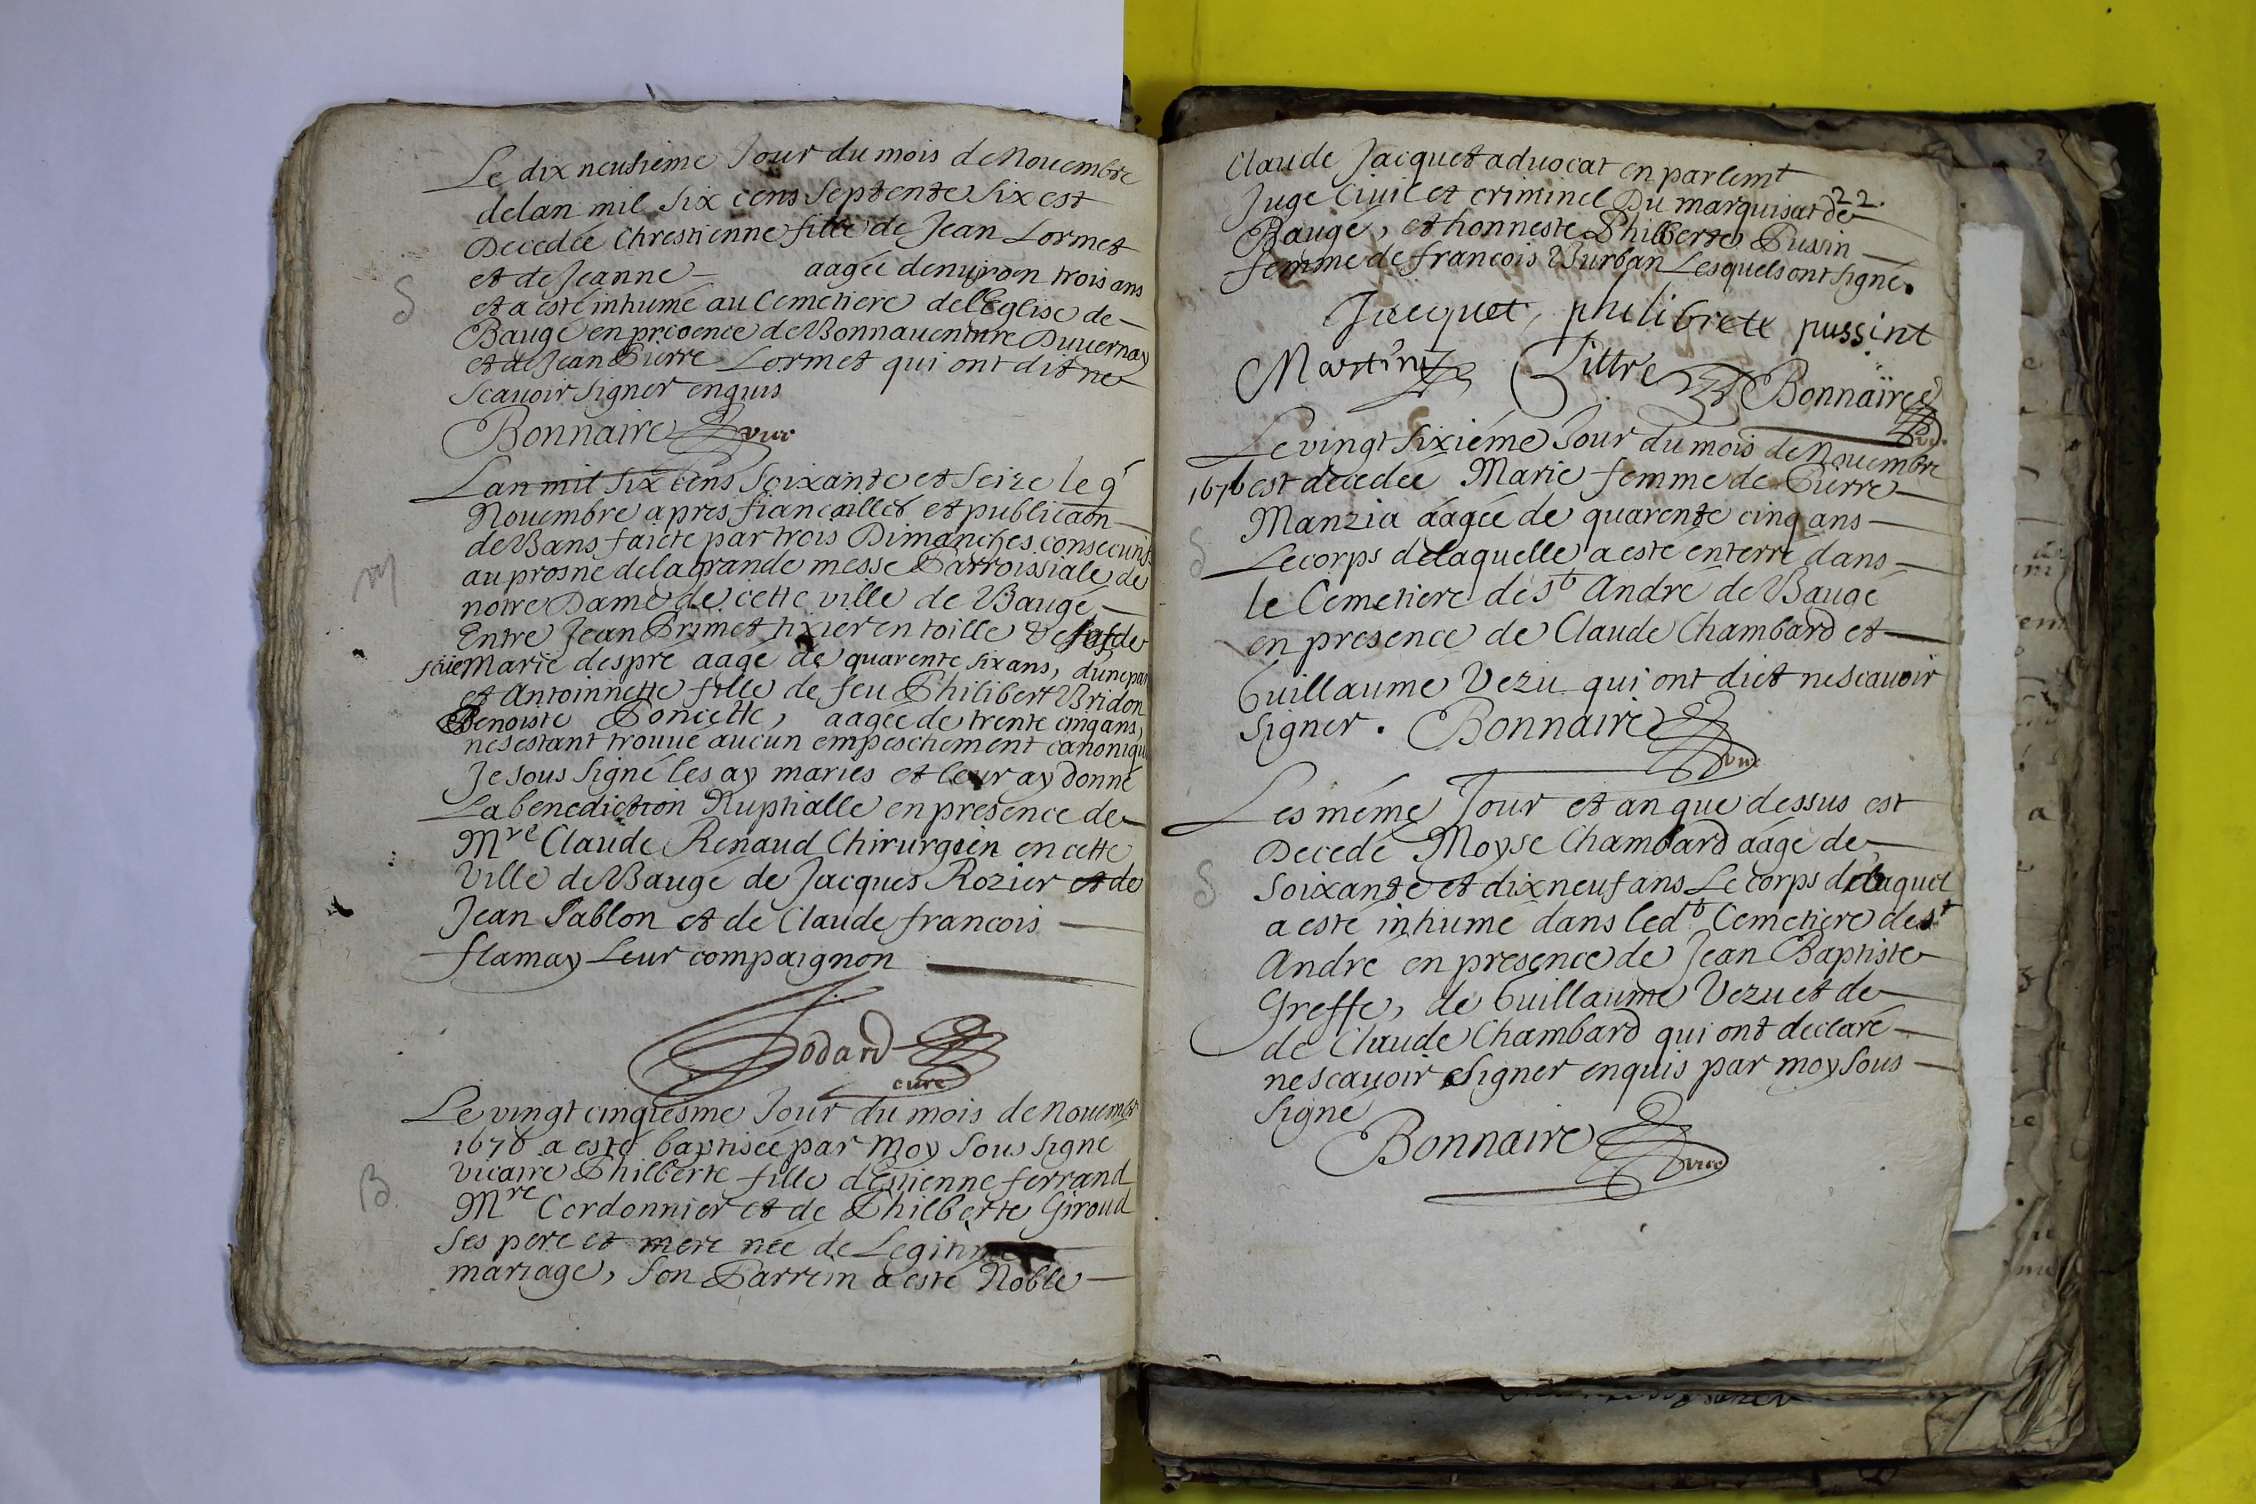 Le dix neufieme Jour du mois de Nouembre
delan mil six cens septente six est
Decedée Chrestienne fille de Jean Lormet
et de Jeanne — aagée denuiron trois ans
et a esté inhume au Cemetiere delEglise de
S
Baugé en presence de Bonnauenture Duuernay
et de Jean Pierre Lormet qui ont dit ne
scauoir signer enquis
Bonnaire vicr
Lan mil six cens soixante et seize le 9e
Nouembre apres fiancailles et publicaon
de Bans faicte par trois Dimanches consecutifs
au prosne de la grande messe Parroissiale de
M
notre Dame de cette ville de Baugé
Entre Jean Primet tixier en toille de
Marie despré aagé de quarente six ans, dune part
et Antoinnette fille de feu Philibert Bridon
Benoiste Poncette, aagée de trente cinq ans,
ne sestant trouué aucun empeschement canonique
Je sous signé les ay mariés et leur ay donné
La benediction Nuptialle en presence de
Mre Claude Renaud Chirurgien en cette
ville de Baugé de Jacques Rozier et de
Jean Sablon et de Claude francois
flamay Leur compaignon
Godard
curé
Le vingt cinqiesme Jour du mois de nouembr
1676 a esté baptisée par moy sous signé
vicaire Philberte fille dEstienne ferrand
B
Mre Cordonnier et de Philberte Giroud
ses pere et mere née de Legitime
mariage, son Parrein a esté Noble
22.
Claude Jacquet aduocat en parlemt
Juge Ciuil et criminel Du marquisat de
Baugé, et honneste Philberte Pussin
femme de francois Burban Lesquels ont signé.
Jacquet, philiberte pussint
Martin Bonnaire
Le vingt sixiéme Jour du mois de Nouembre
1676 est decedée Marie femme de Pierre
Manzia aagée de quarente cinq ans
S
Le corps de laquelle a esté enterré dans
le Cemetiere de St André de Baugé
en presence de Claude Chambard et
Guillaume Vezu qui ont dict ne scauoir
signer. Bonnaire vicr
Les méme Jour et an que dessus est
Decedé Moyse Chambard aagé de
S
soixante et dix neuf ans Le corps duquel
a esté inhumé dans ledt Cemetiere de St
André en presence de Jean Baptiste
Greffe, de Guillaume Vezu et de
de Claude Chambard qui ont declaré
ne scauoir signer enquis par moy sous
signé
Bonnaire vicr